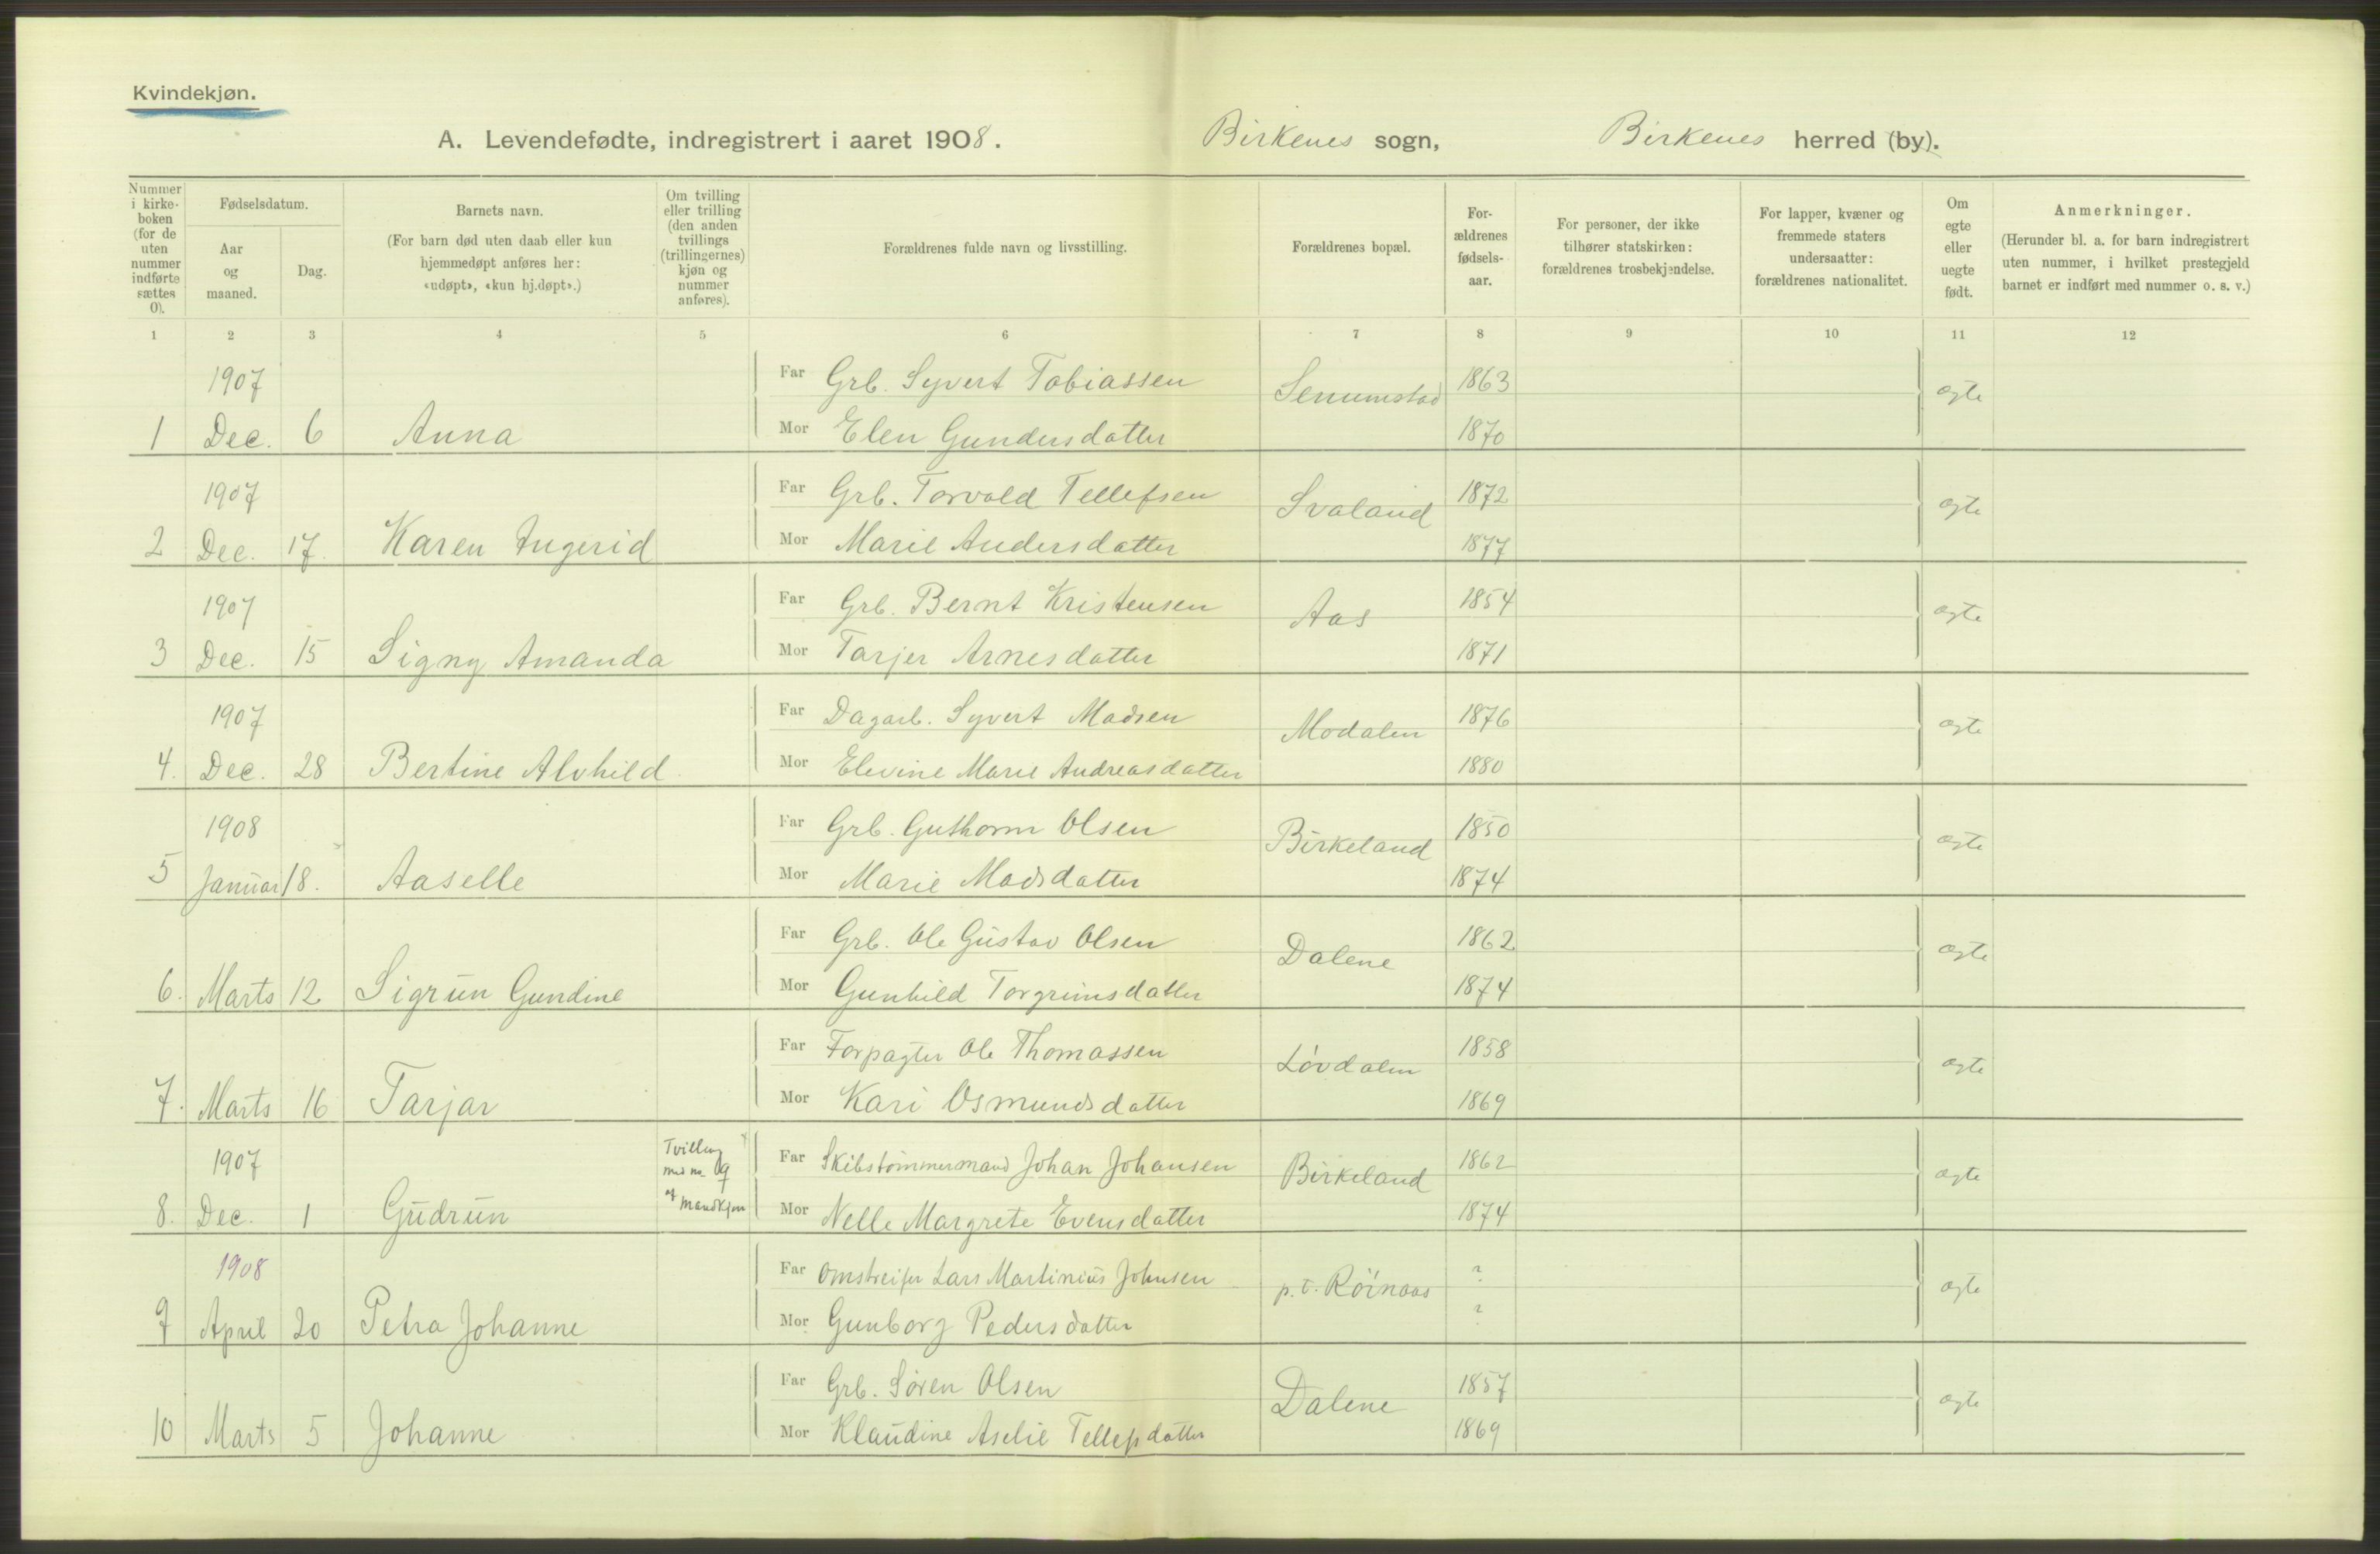 Kvindekjøn.
A. Levendefødte, indregistrert i aaret 1908. Birkenes sogn, Birkenes herred (by).
Nummer i kirke-boken (for de uten nummer indførte sættes 0).
Fødselsdatum.
Aar og maaned.
Dag.
Barnets navn.
(For barn død uten daab eller kun hjemmedøpt anføres her: «udøpt», «kun hj.døpt».)
Om tvilling eller trilling (den anden tvillings (trillingernes) kjøn og nummer anføres).
Forældrenes fulde navn og livsstilling.
Forældrenes bopæl.
For-ældrenes fødsels-aar.
For personer, der ikke tilhører statskirken: forældrenes trosbekjendelse.
For lapper, kvæner og fremmede staters undersaatter: forældrenes nationalitet.
Om egte eller uegte født.
Anmerkninger.
(Herunder bl. a. for barn indregistrert uten nummer, i hvilket prestegjeld barnet er indført med nummer o. s. v.)
1 2 3 4 5 6 7 8 9 10 11 12
1907 Far Grb. Syvert Tobiassen Senumstad 1863 ægte
1 Dec. 6 Anna Mor Elen Gundersdatter 1870
1907 Far Grb. Torvald Tellefsen Svaland 1872 ægte
2 Dec. 17. Karen Ingerid Mor Marie Andersdatter 1877
1907 Far Grb. Bernt Kristensen Aas 1854 ægte
3 Dec. 15 Signy Amanda Mor Tarjer Arnesdatter 1871
1907 Far Dagarb. Syvert Madsen Modalen 1876 ægte
4. Dec. 28 Bertine Alvhild Mor Elevine Marie Andreasdatter 1880
1908 Far Grb. Guthorm Olsen Birkeland 1850 ægte
5 Januar 18. Aaselle Mor Marie Madsdatter 1874
Far Grb. Ole Gustav Olsen Dalene 1862 ægte
6. Marts 12 Sigrun Gundine Mor Gunhild Torgrimsdatter 1874
Far Forpagter Ole Thomassen Løvdalen 1858 ægte
7. Marts 16 Tarjar Mor Kari Osmundsdatter 1869
1907 Tvilling med no 9 af mandkjøn Far Skibstømmermand Johan Johansen Birkeland 1862 ægte
8. Dec. 1 Gudrun Mor Nelle Margrete Evensdatter 1874
1908 Far Omstreifer Lars Martinius Johnsen p.t. Røinaas ? ægte
9 April 20 Petra Johanne Mor Gunborg Pedersdatter ?
Far Grb. Søren Olsen Dalene 1857 ægte
10 Marts 5 Johanne Mor Klaudine Aselie Tellefsdatter 1869